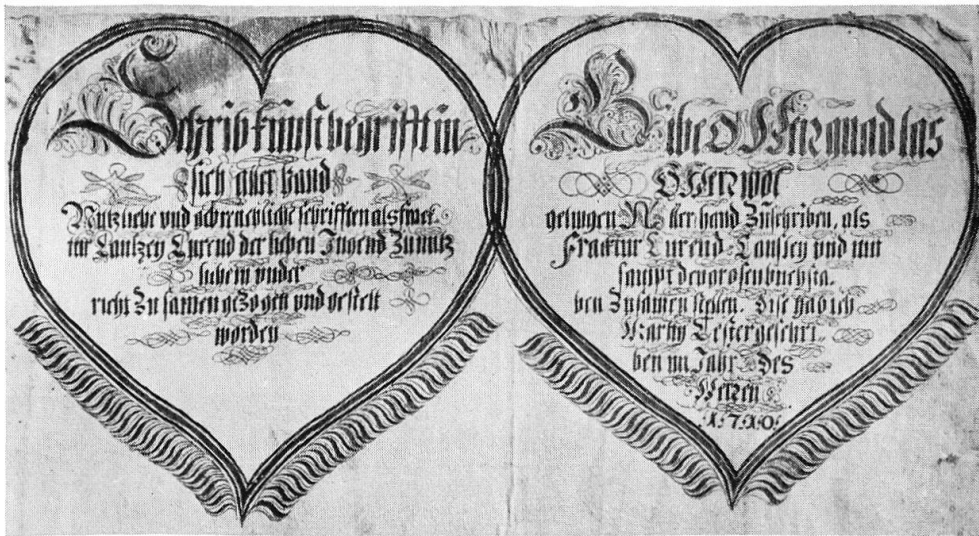 Schribkunst begrifft in
sich aller hand
Nutzliche und schrifften als frac
tur Cantzey Curend der lieben Jugend Zu nutz
under
richt Zu samen geZogen und gestelt
worden
Gibe O Herr gnad las
O Herr wol
gelingen Aller hand Zuschriben, als
Fraktur Curend Cantzley und mit
sampt den grosen buchsta.
ben Zusamen stelen. Dise hab ich
geschri-
ben im Jahr Des
Herren
1710.